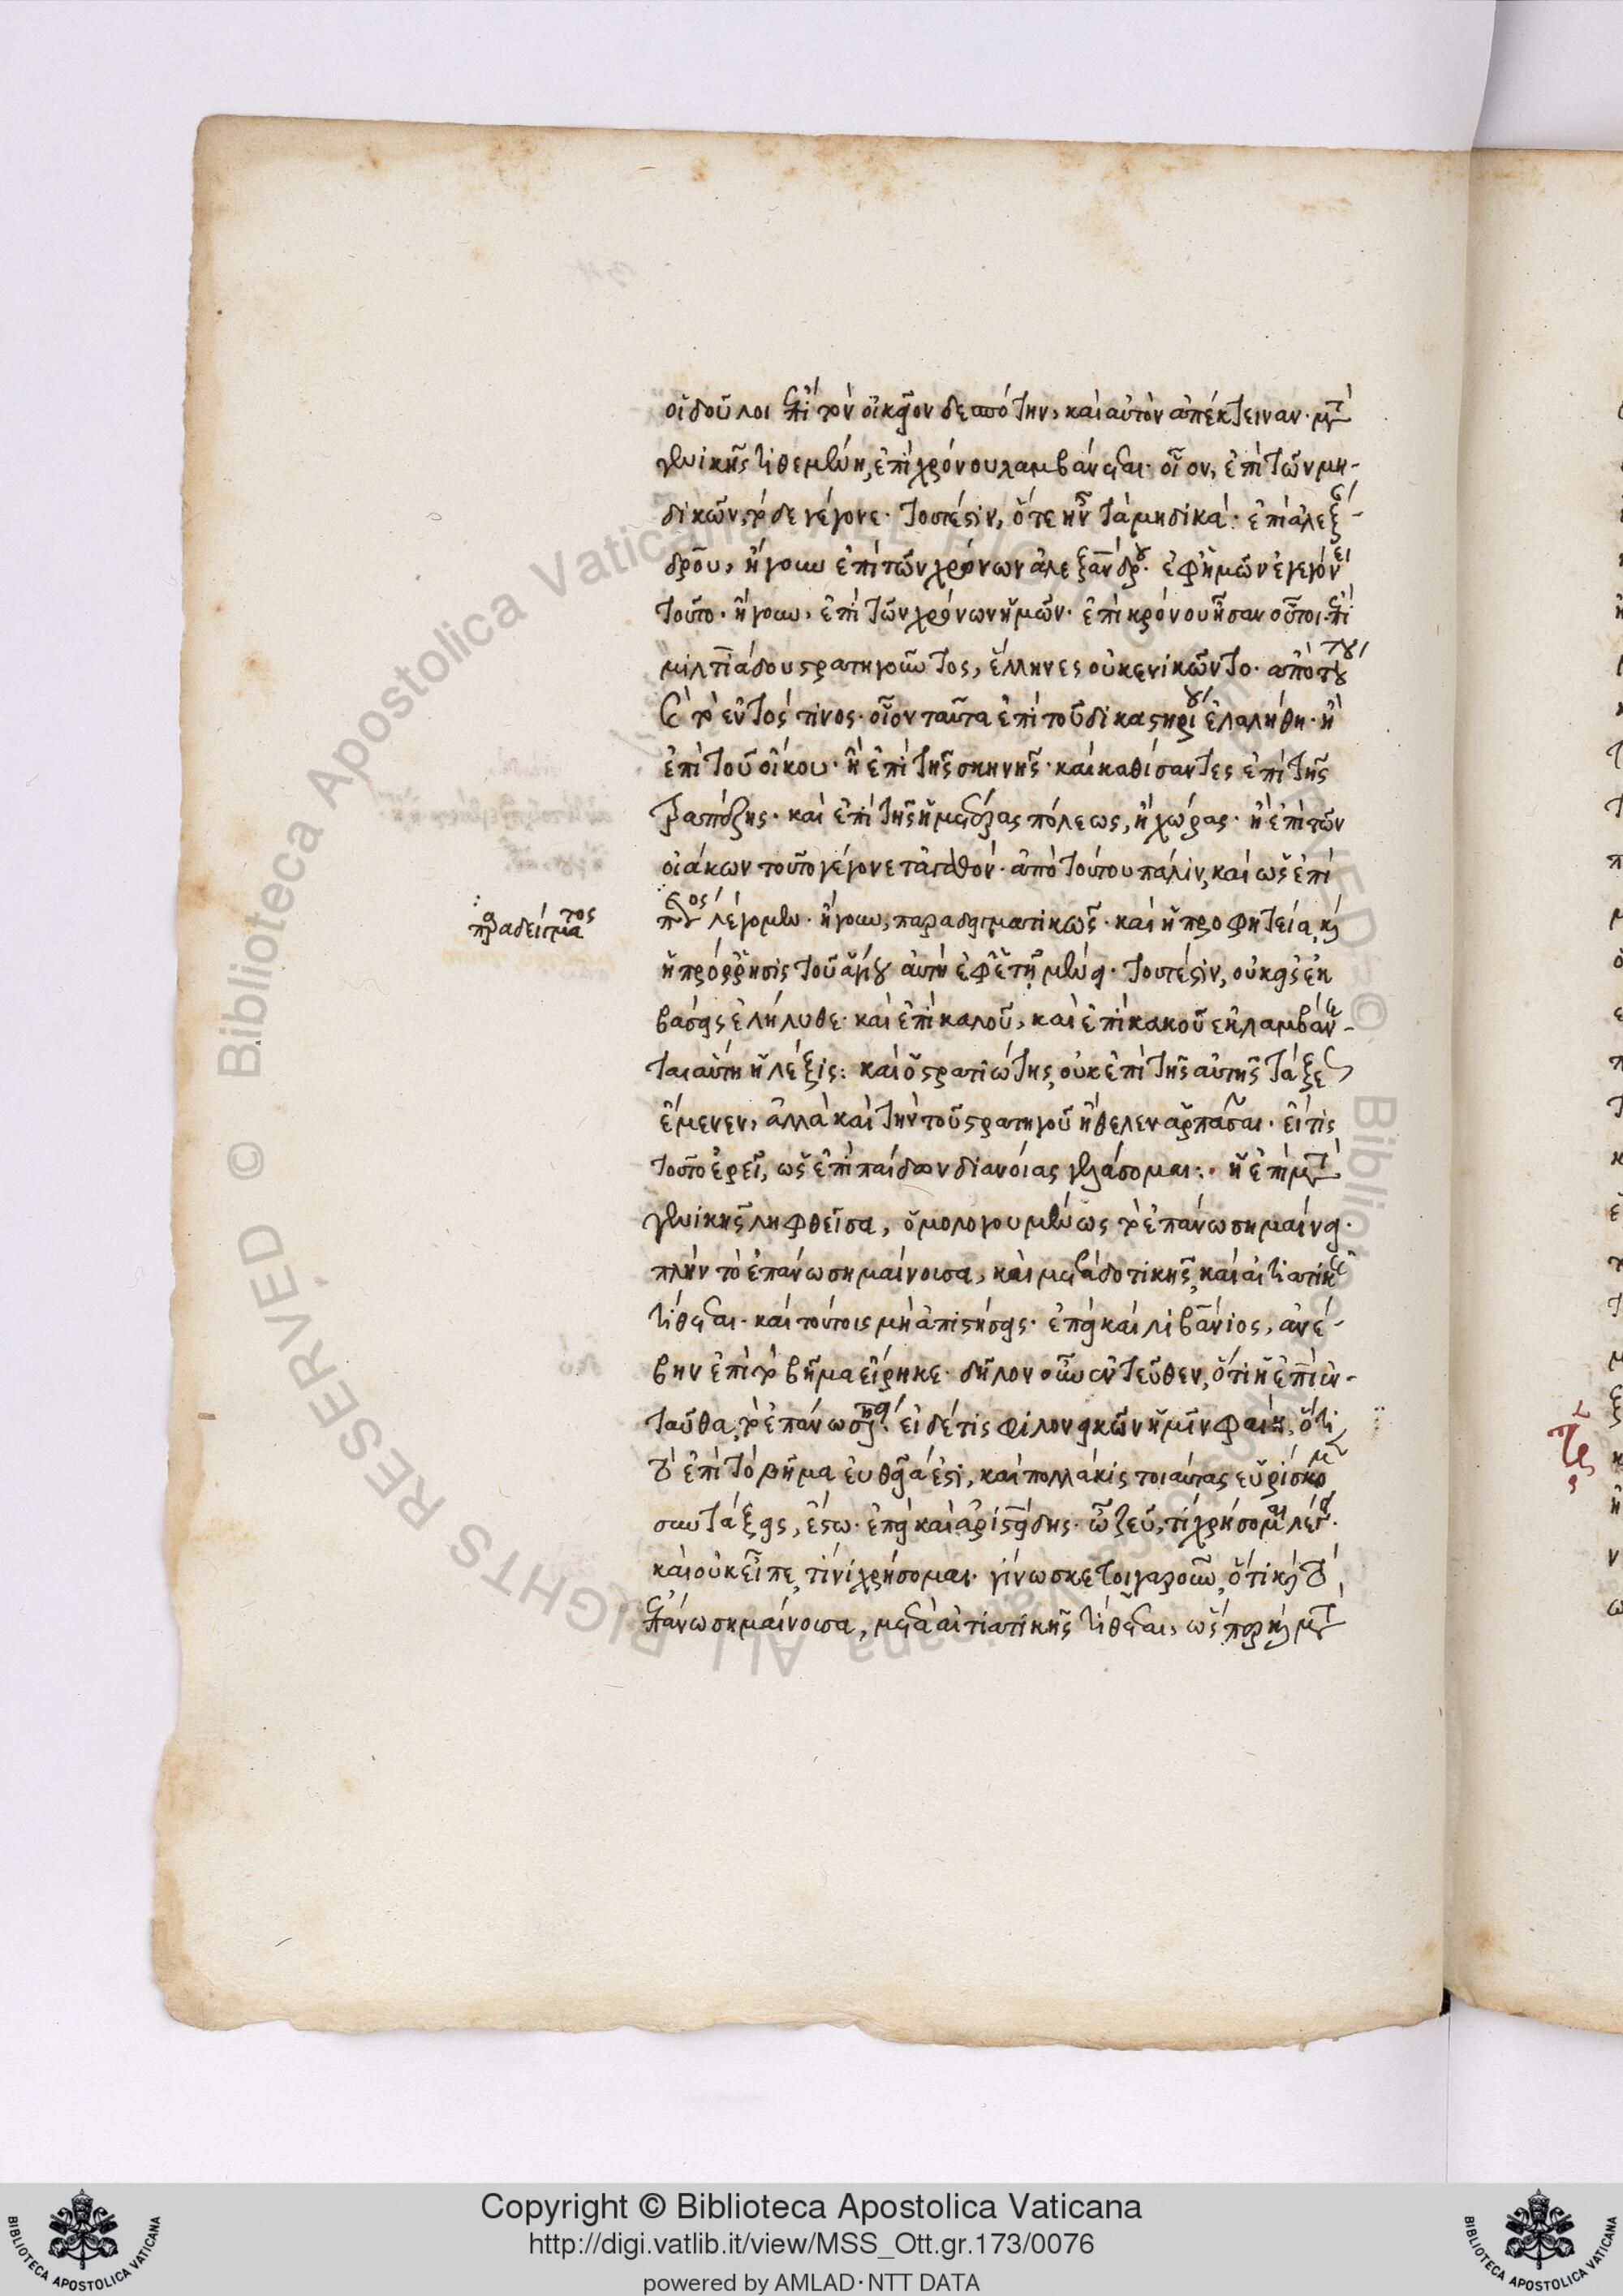 οἱ δοῦλοι ἐπὶ τὸν οἰκεῖον δεσπότην, καὶ αὐτὸν ἀπέκτειναν. μετὰ
γενικῆς τιθεμένη, ἐπὶ χρόνου λαμβάνεται. οἷον, ἐπὶ τῶν μη-
δικῶν, τόδε γέγονε. τουτέστιν, ὅτε ἦν τὰ μηδικά. ἐπὶ ἀλεξ-
άνδρου, ἤγουν ἐπὶ τῶν χρόνων ἀλεξάνδρου. ἐφ' ἡμῶν ἐγεγόνει
τοῦτο. ἤγουν, ἐπὶ τῶν χρόνων ἡμῶν. ἐπὶ κρόνου ἦσαν οὗτοι. ἐπὶ
μιλτιάδου στρατηγοῦντος, ἕλληνες οὐκ ἐνικῶντο. ἀπὸ τούτου
καὶ τὸ ἐντός τινος. οἷον ταῦτα ἐπὶ τοῦ δικαστηρίου ἐλαλήθη. ἢ
ἐπὶ τοῦ οἴκου. ἢ ἐπὶ τῆς σκηνῆς. καὶ καθίσαντες ἐπὶ τῆς
τραπέζης. καὶ ἐπὶ τῆς ἡμετέρας πόλεως, ἢ χώρας. ἢ ἐπὶ τῶν
οἰάκων τοῦτο γέγονε τἀγαθόν. ἀπὸ τούτου πάλιν, καὶ ὡς ἐπὶ
λέγομεν. ἤγουν, παραδειγματικῶς. καὶ ἡ προφητεία, καὶ
παραδείγματος
ἡ πρόρρησις τοῦ ἁγίου αὐτὴ ἐφ' μένει. τουτέστιν, οὐκ εἰς ἐκ
βάσεις ἐλήλυθε. καὶ ἐπὶ καλοῦ, καὶ ἐπὶ κακοῦ ἐκλαμβάνε-
ται αὕτη ἡ λέξις: καὶ ὁ στρατιώτης, οὐκ ἐπὶ τῆς αὐτῆς τάξεως
ἔμενεν, ἀλλὰ καὶ τὴν τοῦ στρατηγοῦ ἤθελεν ἁρπάσαι. εἴ τις
τοῦτο ἐρεῖ, ὡς ἐπὶ παίδων διανοίας γελάσομαι:. ἡ ἐπὶ μετὰ
γενικῆς ληφθεῖσα, ὁμολογουμένως τὸ ἐπάνω σημαίνει.
πλὴν τὸ ἐπάνω σημαίνουσα, καὶ μετὰ δοτικῆς, καὶ αἰτιατικῆς
τίθεται. καὶ τούτοις μὴ ἀπιστήσεις. ἐπεὶ καὶ λιβάνιος, ἀνέ-
βην ἐπὶ τὸ βῆμα εἴρηκε. δῆλον οὖν ἐντεῦθεν, ὅτι ἡ ἐπὶ ἐν-
ταῦθα, τὸ ἐπάνω σημαίνει. εἰ δέ τις φιλονεικῶν ἡμῖν φαίη, ὅτι
τὸ ἐπὶ τὸ βῆμα εὐθεῖά ἐστι, καὶ πολλάκις τοιαύτας εὑρίσκομεν
συντάξεις, ἔστω. ἐπεὶ καὶ ἀριστείδης. ὦ ζεῦ, τί χρήσομαι λέγει.
καὶ οὐκ εἶπε, τίνι χρήσομαι. γίνωσκε τοιγαροῦν, ὅτι καὶ τὸ
ἐπάνω σημαίνουσα, μετὰ αἰτιατικῆς τίθεται, ὥσπερ καὶ μετὰ
Copyright © Biblioteca Apostolica Vaticana
http://digi.vatlib.it/view/MSS_Ott.gr.173/0076
powered by AMLAD·NTT DATA